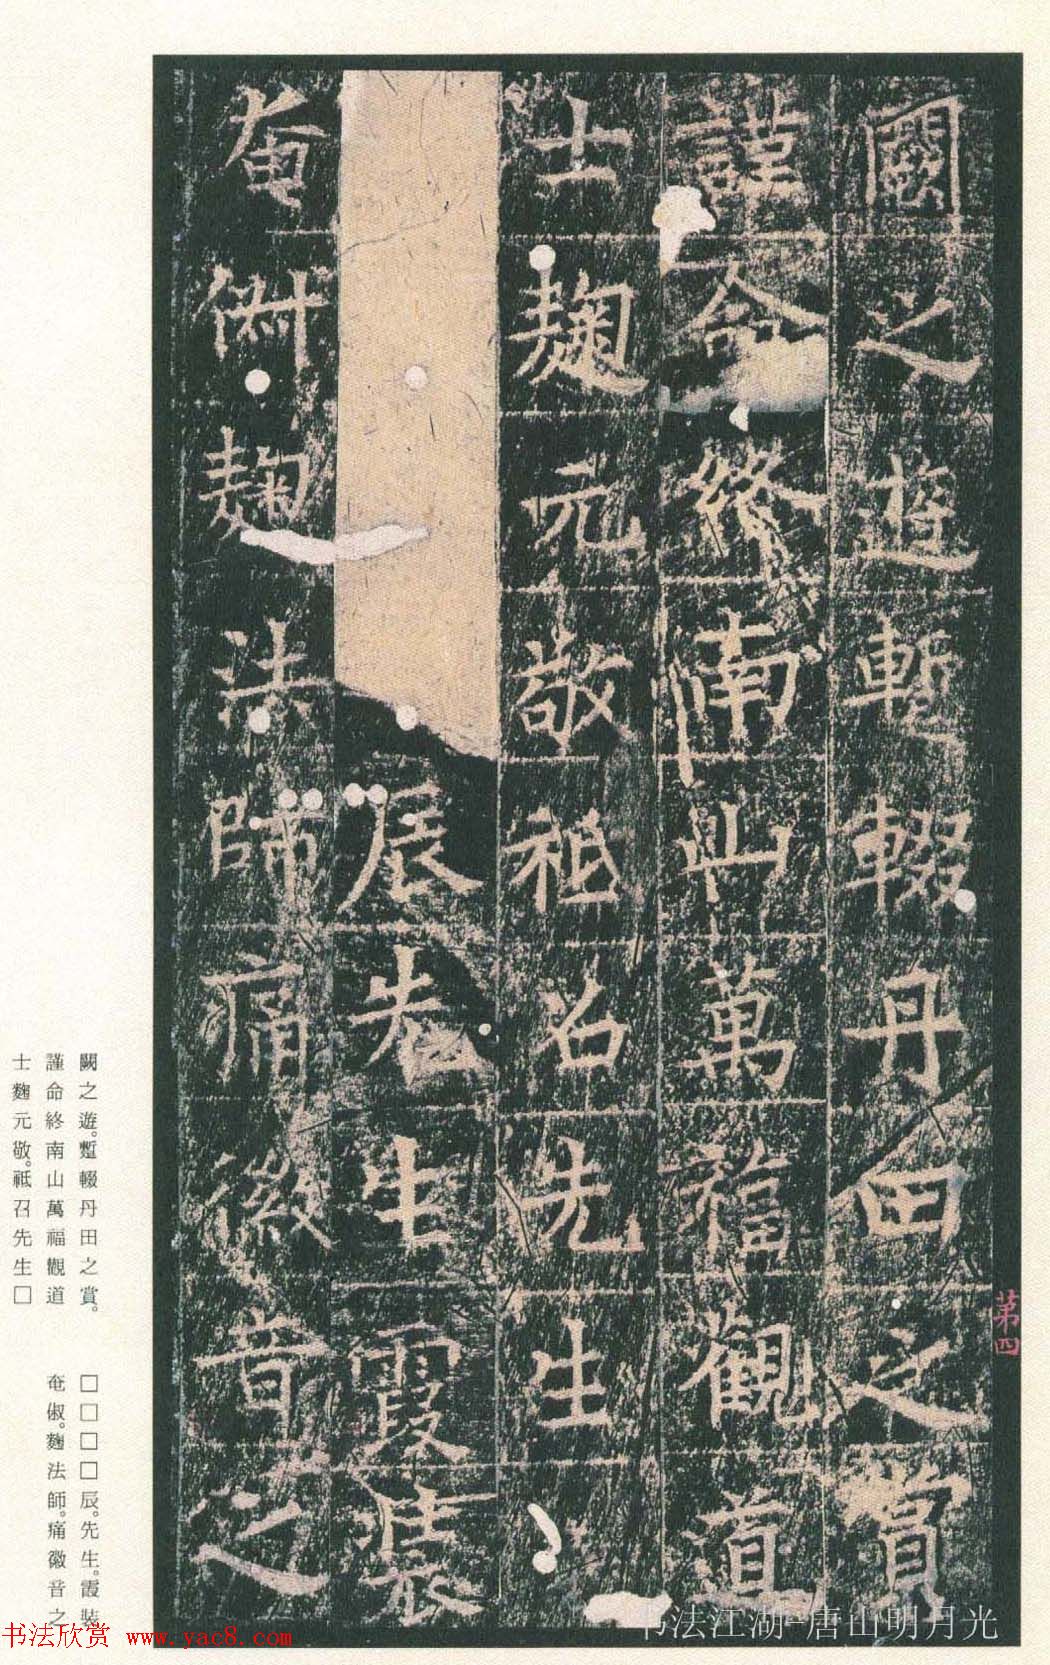 闕之遊蹔輟丹田之賞
謹命終南山萬福觀道
士麹元敬祗召先生
辰先生霞裝
奄俶麹法師痛徽音之
第四
闕之遊。蹔輟丹田之賞。
謹命終南山萬福觀道
士麴元敬。祗召先生□
□□□□辰。先生。霞裝
奄俶。麴法師。痛徽音之
书法江湖-唐山明月光
书法欣赏 www.yac8.com